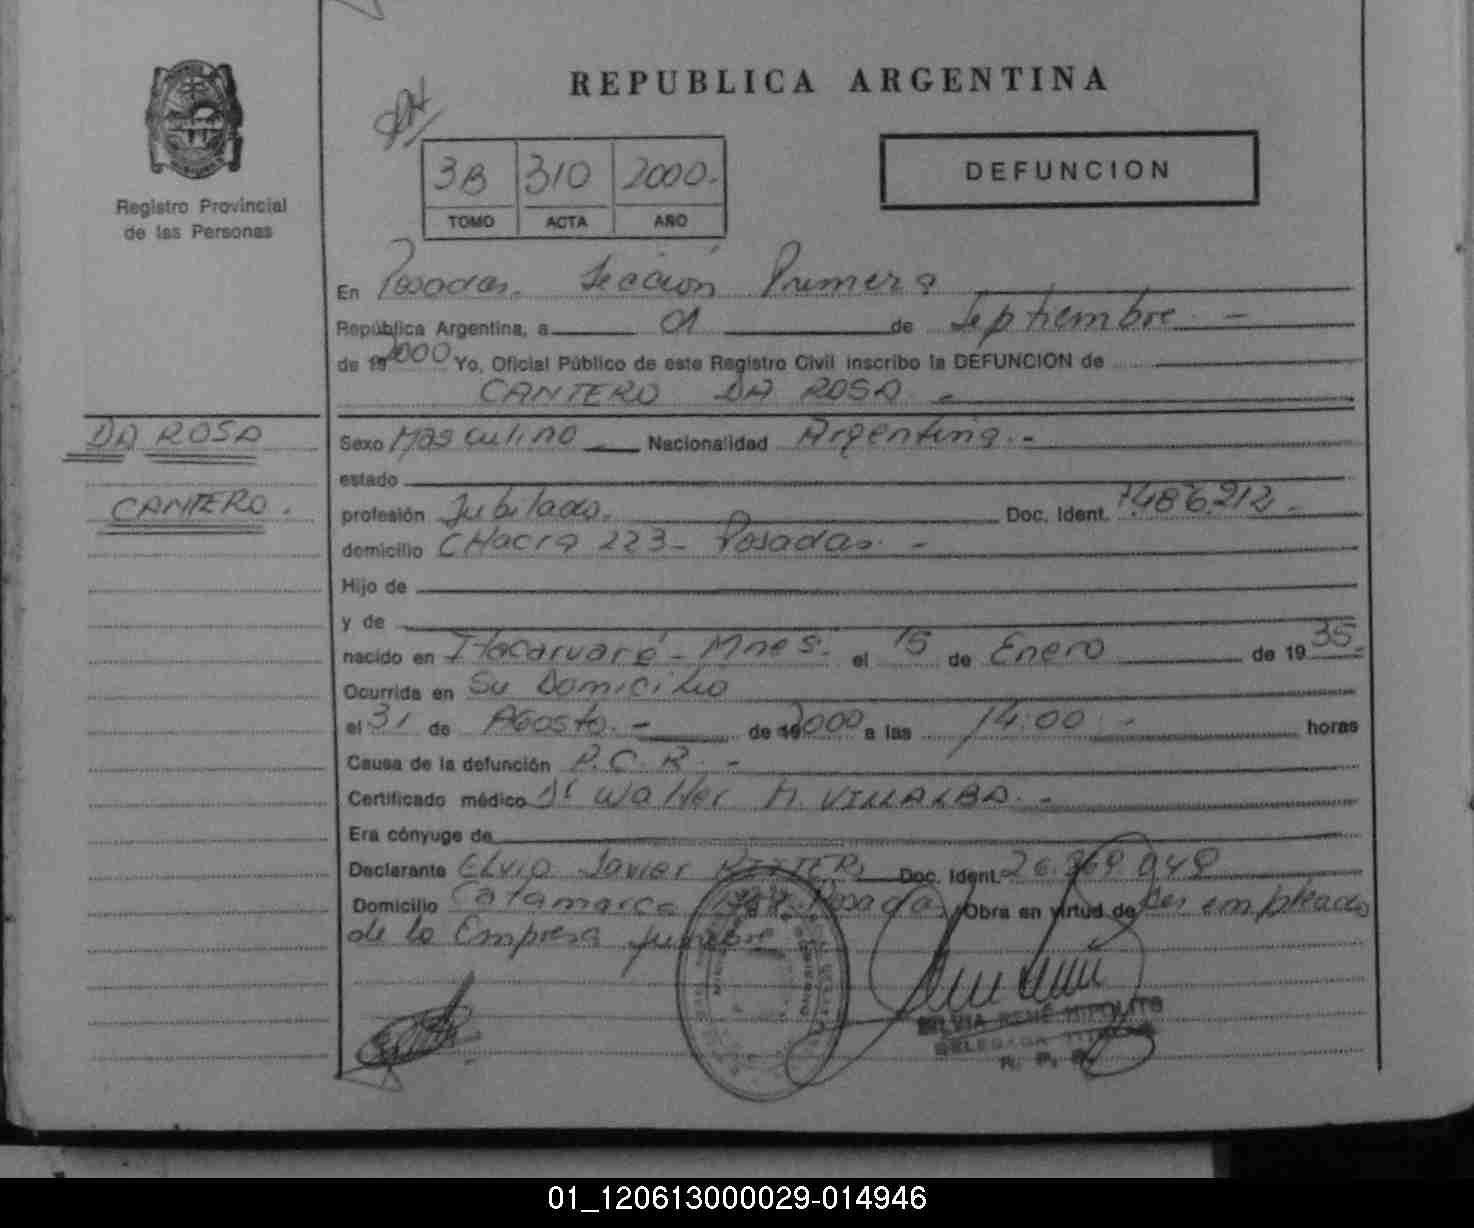 REPUBLICA ARGENTINA
Registro Provincial
de las Personas
3B 310 2000.
TOMO ACTA AÑO
DEFUNCION
En Posadas. Sección Primera
República Argentina, a 01 de Septiembre. -
de 19 2000 Yo, Oficial Público de este Registro Civil inscribo la DEFUNCION de
CANTERO DA ROSA. -
DA ROSA
CANTERO.
Sexo Masculino Nacionalidad Argentina. -
estado
profesión Jubilado. Doc. Ident. 7.486.212. -
domicilio CHacra 223 - Posadas. -
Hijo de
y de
nacido en Itacaruaré - Mnes. el 15 de Enero de 19 35. -
Ocurrida en Su Domicilio
el 31 de Agosto. - de 19 2000 a las 14:00. - horas
Causa de la defunción P.C.R. -
Certificado médico Dr Walter H. VILLALBA. -
Era cónyuge de
Declarante Elvio Javier Doc. Ident. 26.369.049
Domicilio Catamarca Posadas Obra en virtud de Ser empleado
de la Empresa funebre
SILVIA RENÉ HIPOLITO
DELEGADA
R. P. P.
01_120613000029-014946